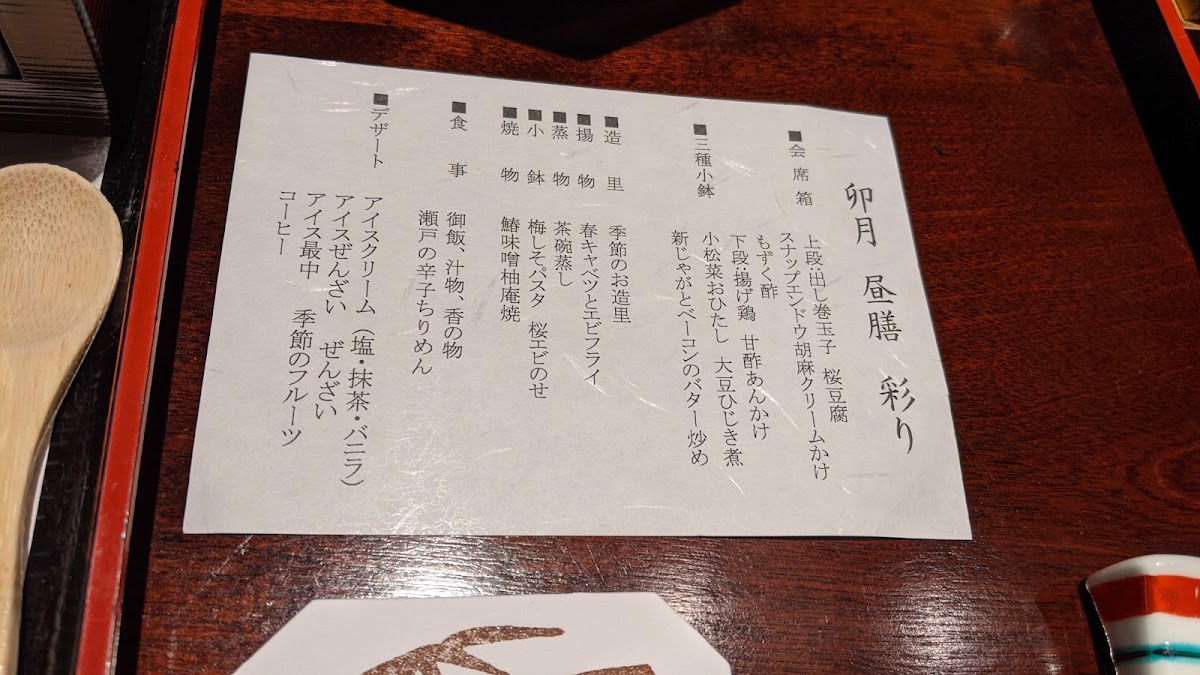 卯月 昼膳 彩り
■会席箱
上段:出し巻玉子 桜豆腐
スナップエンドウ胡麻クリームかけ
もずく酢
下段:揚げ鶏 甘酢あんかけ
■三種小鉢
小松菜おひたし 大豆ひじき煮
新じゃがとベーコンのバター炒め
■造里 季節のお造里
■揚物 春キャベツとエビフライ
■蒸物 茶碗蒸し
■小鉢 梅しそパスタ 桜エビのせ
■焼物 鰆味噌柚庵焼
■食事 御飯、汁物、香の物
瀬戸の辛子ちりめん
■デザート アイスクリーム(塩・抹茶・バニラ)
アイスぜんざい ぜんざい
アイス最中 季節のフルーツ
コーヒー